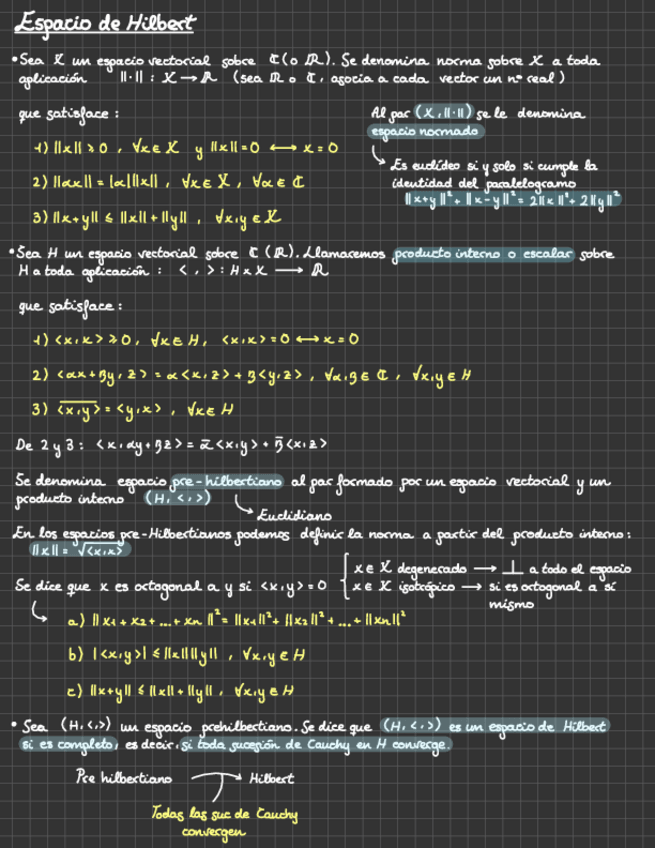 Espacio de Hilbert
• Sea X un espacio vectorial sobre ℂ (o ℝ). Se denomina norma sobre X a toda
aplicación ||·|| : X → ℝ (sea ℝ o ℂ, asocia a cada vector un nº real)
que satisface :
1) ||x|| ≥ 0 , ∀x ∈ X y ||x|| = 0 ⟷ x = 0
2) ||αx|| = |α| ||x|| , ∀x ∈ X , ∀α ∈ ℂ
3) ||x+y|| ≤ ||x|| + ||y|| , ∀x,y ∈ X
Al par (X, ||·||) se le denomina
espacio normado
↳ Es euclídeo si y solo si cumple la
identidad del paralelogramo
||x+y||² + ||x-y||² = 2||x||² + 2||y||²
• Sea H un espacio vectorial sobre ℂ (ℝ). Llamaremos producto interno o escalar sobre
H a toda aplicación : < , > : H x X → ℝ
que satisface :
1) <x,x> ≥ 0, ∀x ∈ H, <x,x> = 0 ⟷ x = 0
2) <αx + βy, z> = α<x,z> + β<y,z> , ∀α,β ∈ ℂ , ∀x,y ∈ H
3) \overline{<x,y>} = <y,x> , ∀x ∈ H
De 2 y 3 : <x, αy + βz> = ᾱ<x,y> + β̄<x,z>
Se denomina espacio pre-hilbertiano al par formado por un espacio vectorial y un
producto interno (H, < , >)
↳ Euclidiano
En los espacios pre-Hilbertianos podemos definir la norma a partir del producto interno :
||x|| = √<x,x>
Se dice que x es octogonal a y si <x,y> = 0
x ∈ X degenerado → ⊥ a todo el espacio
x ∈ X isotrópico → si es octogonal a sí
mismo
a) ||x₁ + x₂ + ... + xn||² = ||x₁||² + ||x₂||² + ... + ||xn||²
b) |<x,y>| ≤ ||x|| ||y|| , ∀x,y ∈ H
c) ||x+y|| ≤ ||x|| + ||y|| , ∀x,y ∈ H
• Sea (H, < , >) un espacio prehilbertiano. Se dice que (H, < , >) es un espacio de Hilbert
si es completo, es decir, si toda sucesión de Cauchy en H converge.
Pre hilbertiano → Hilbert
Todas las suc de Cauchy
convergen